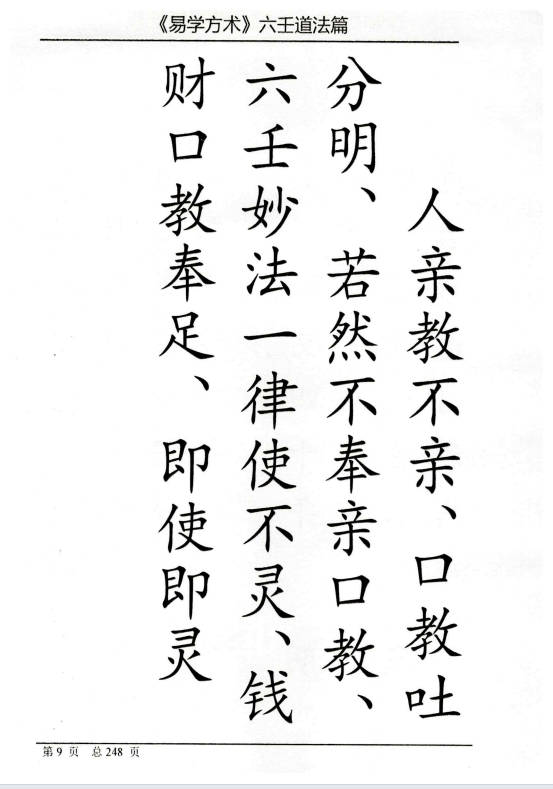 《易学方术》六壬道法篇
人亲教不亲、口教吐
分明、若然不奉亲口教、
六壬妙法一律使不灵、钱
财口教奉足、即使即灵
第9页 总248页